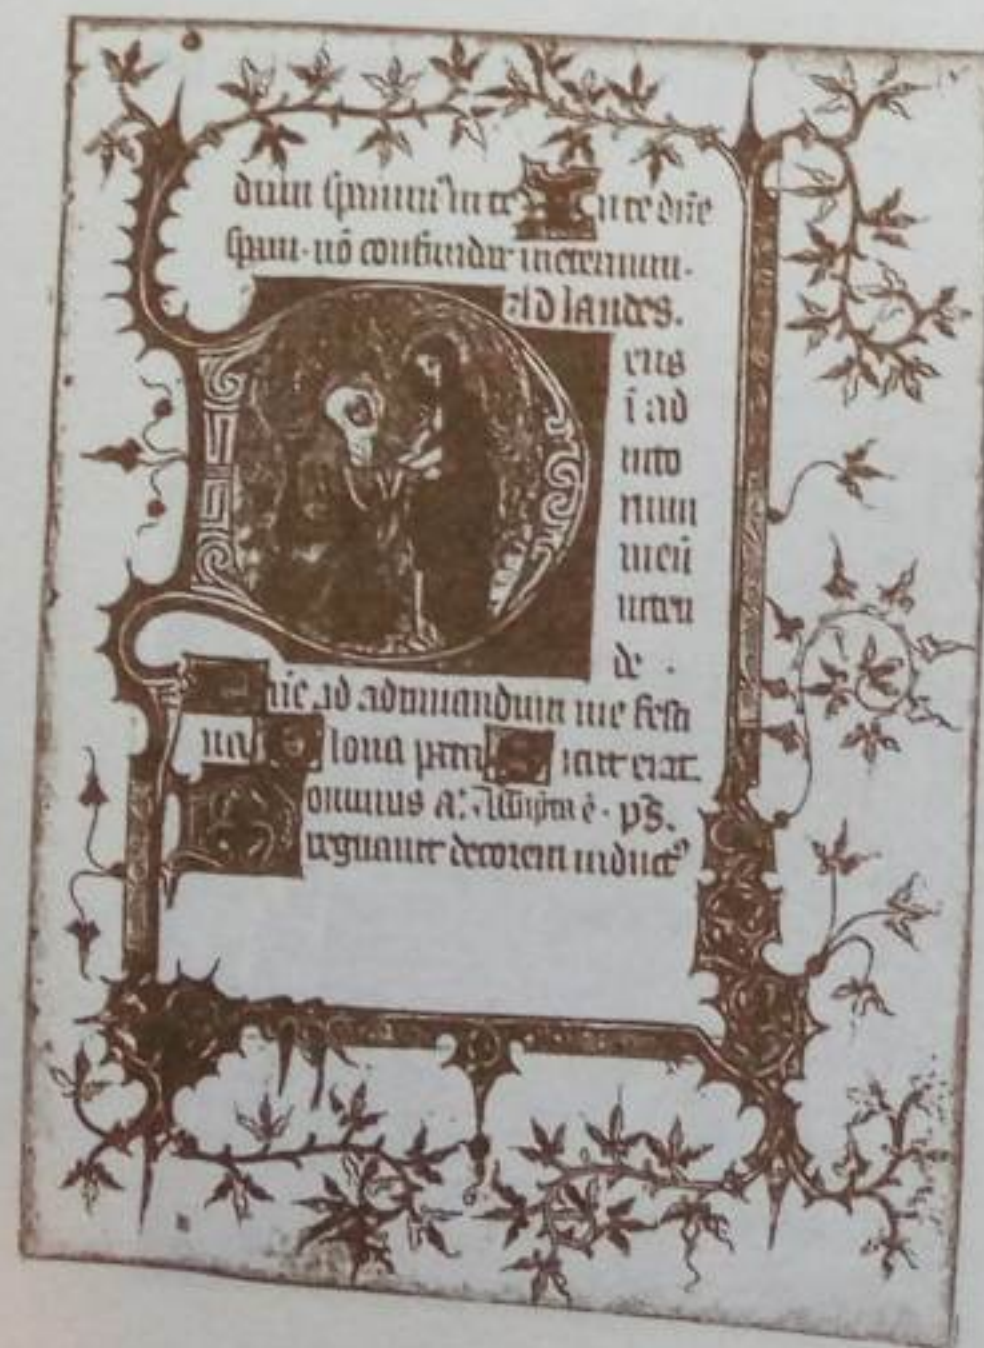 dum spauim⁹ in te In te dñe
spaui · nō confundar in eternum ·
Ad laudes.
Deus
ī ad
iuto
rium
meū
inten
de .
Dñe ad adiuuandum me festi
na Gloria patri Sicut erat
Dominus a. ps.
regnauit decorem indut⁹